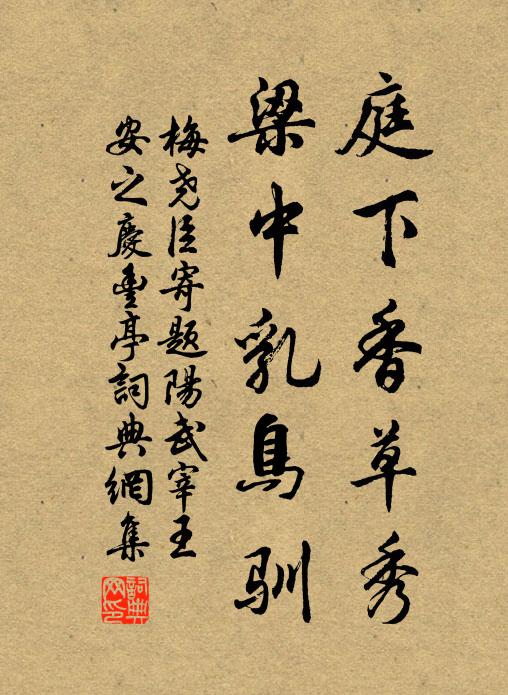 庭下香草秀
梁中乳鳥馴
梅堯臣寄題陽武宰王
安之慶豐亭詞典網集
詞典網印